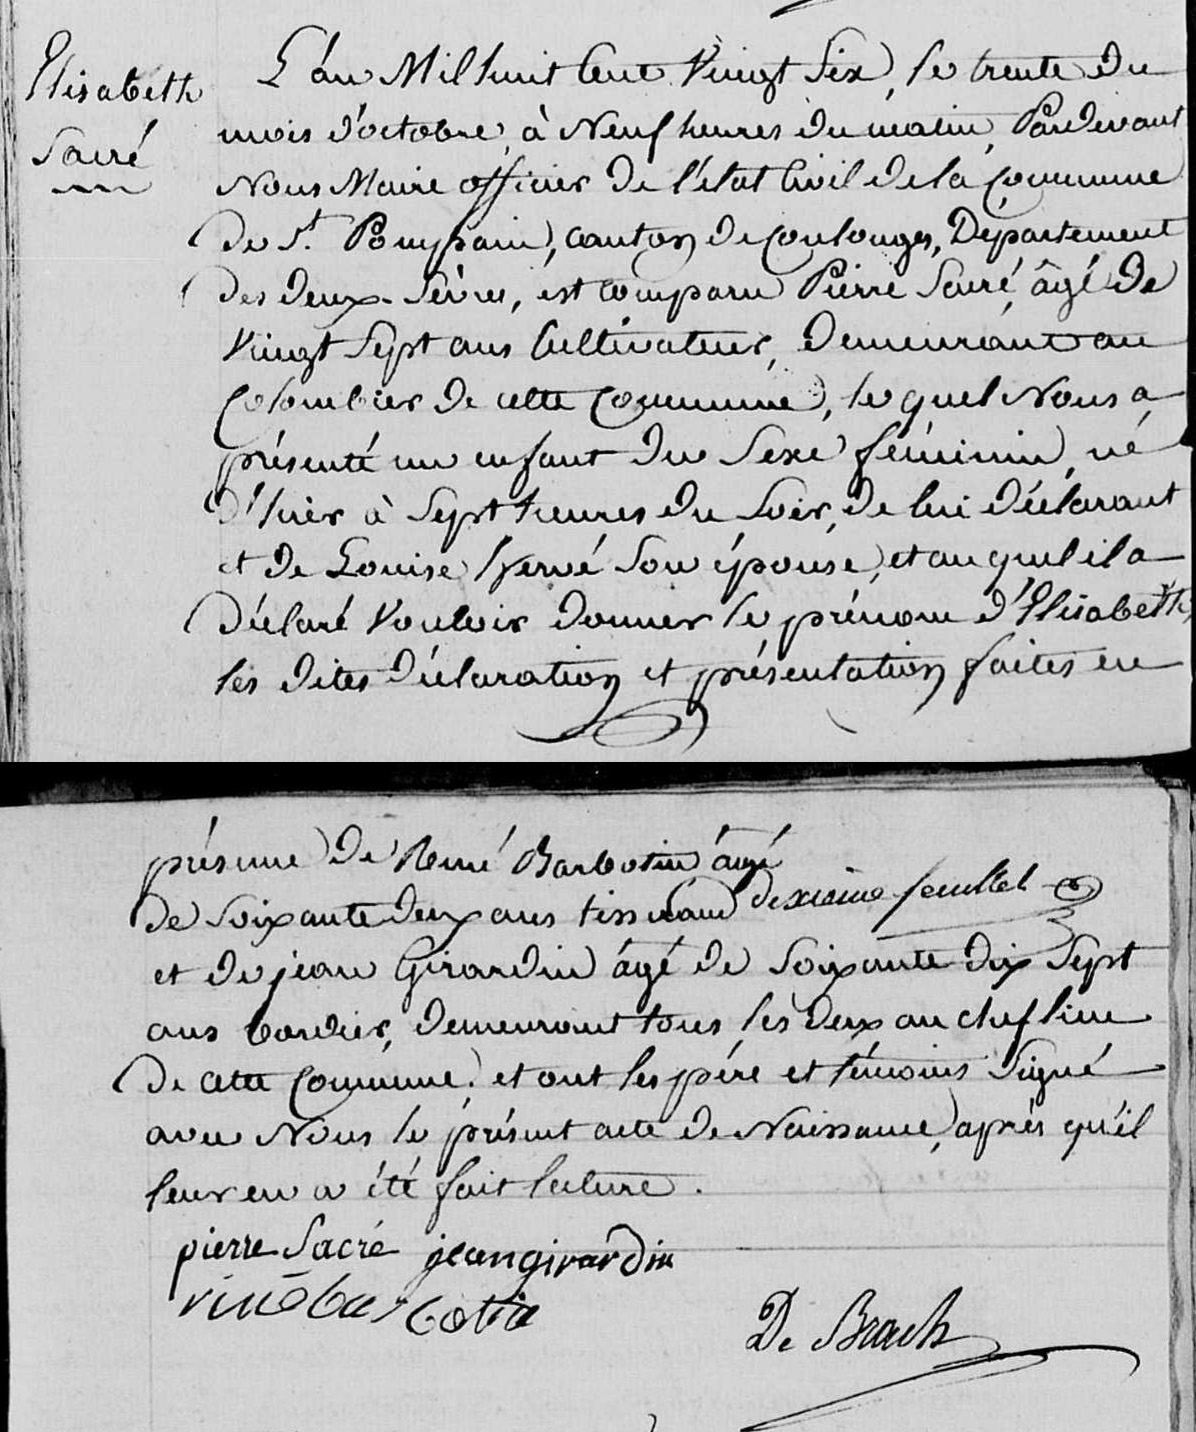 Elisabeth
Sacré
L'an Mil huit Cent Vingt Six, le trente du
mois d'octobre, à Neuf heures du matin, Pardevant
Nous Maire officier de l'état Civil de la Commune
de St. Pompain, canton de Coulonges, Département
des deux-Sèvres, est comparu Pierre Sacré, âgé de
Vingt Sept ans Cultivateur, demeurant au
Colombier de cette Commune, le quel Nous a
présenté un enfant du Sexe féminin, né
d'hier à Sept heures du Soir, de lui déclarant
et de Louise hervé Son épouse, et au quel il a
déclaré Vouloir donner le prénom d'Elisabeth,
les dites déclaration et présentation faites en
présence de René Barbotin âgé
de Soixante deux ans tisserand dexieme feuillet
et de jean Girardin âgé de Soixante dix Sept
ans bordier, demeurant tous les deux au chef lieu
de cette Commune, et ont les père et témoins Signé
avec Nous le présent acte de Naissance, après qu'il
leur en a été fait lecture.
pierre Sacré jean girardin
réné barbotin
De Brach